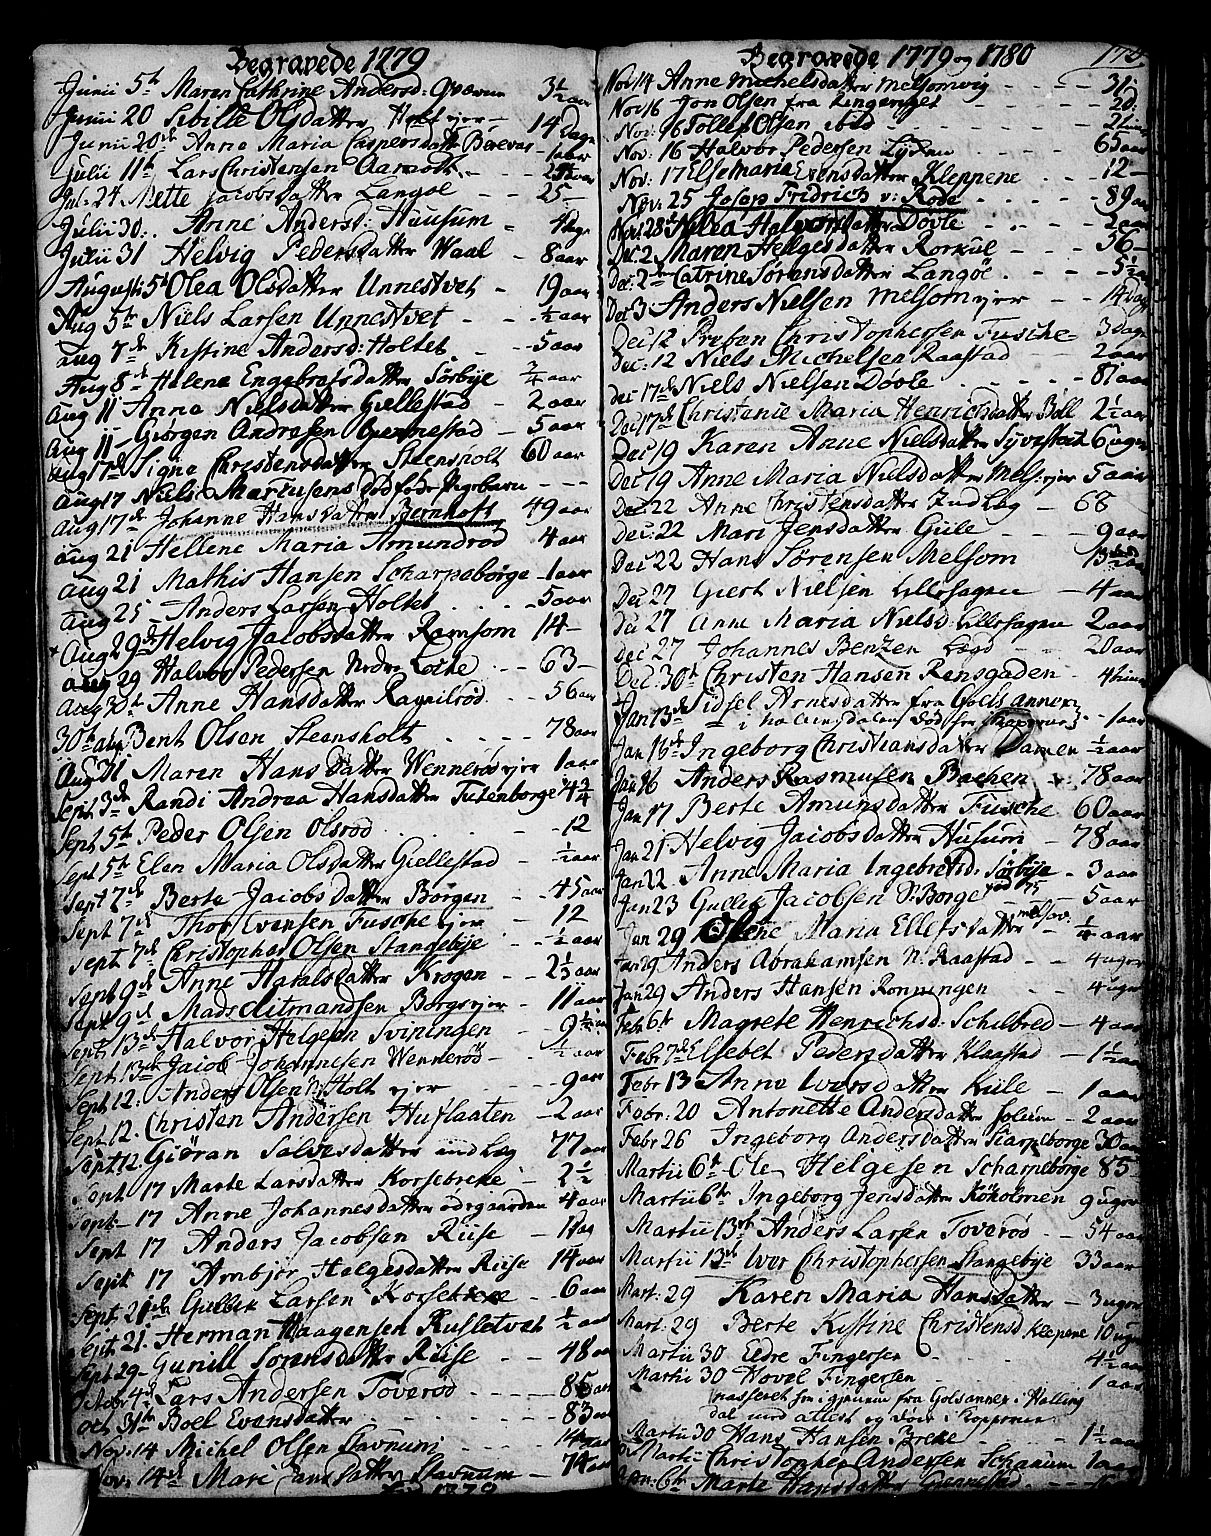 Begravede 1779
Junii 5t Maren Cathrine Andersd: Qværum 3½ aar
Junii 20 Sibille Olsdatter Holt ejer — 14 Dage
Junii 20de Anna Maria Caspersdatt Berevar - 1 aar
Julii 11t Lars Christensen Aarsrott
Jul: 24 Mette Jacobsdatter Langøe — 25 —
Julii 30: Anne Andersd: Huusum = 4 dage
Julii 31 Helvig Pedersdatter Waal - 8 aar
Augusti 5t Olea Olsdatter Unnestvet - 19 aar
Aug 5te Niels Larsen Unnestvet - - ½ aar
aug 7de Kistine Andersd: Holtet - - 5 aar
Aug 8de Helene Engebretsdatter Sørbye ¾ aar
Aug 11 Anna Nielsdatter Giellestad - 2 aar
Aug 11 - Giørgen Andresen Gennestad - 5 aar
aug 17de Signe Christensdatter Steensholt 60 aar
Aug 17 Niels Martusens dødføde Pigebarn - - -
Aug 17de Johanne Hansdatter Bernhoft 49 aar
aug 21 Hellene Maria Amundrød 4 aar
aug 21 Mathis Hansen Scharpeborge - 1 aar
aug 25 - Anders Larsen Holtet - 5 aar
Aug 29de Helvig Jacobsdatter Ramsom 14 -
aug 29 Halvor Pedersen Nedre Løcke - 63 -
Aug 30t Anne Hansdatter Ragnilrød - - 56 aar
30te aug Bent Olsen Steensholt - - - 78 aar
Aug 31 Maren Hansdatter Wennerød ejer 1 aar
Sept. 3de Randi Andrea Hansdatter Tutenborge 4¾
Sept 5te Peder Olsen Olsrød - - 12
Sept 5te Elen Maria Olsdatter Giellestad - - ½ aar
Sept 7de Berte Jacobsdatter Børgen - - 45 aar
Sept 7de Thor Evensen Fusche ejer - 12
Sept 7de Christopher Olsen Stangebye - - ½ aar
Sept 9de Anne Haralsdatter Krogen - - 2⅓ aar
Sept 9de Mads Litmandsen Borgsejer - - 11 aar
Sept 13de Halvor Helgesen Sviningen - - 9
Sept 13de Jacob Johannesen Wennerød - - ½ aar
Sept 12: Anders Olsen N: Holt ejer - - 9 aar
Sept 12. Christen Andersen Huflaaten - 2 aar
Sept 12 Giøran Salvesdatter indlæg 77 aar
Sept 17 Marte Larsdatter Korsebreke - 2½
Sept - 17 Anne Johannesdatter ødegaarden 4 aar
Sept 17 Anders Jacobsen Riise - 11
Sept 17 Ambjør Helgesdatter Riise 14 aar
Sept 21de Gulbr Larsen Korsebreke - - 6 aar
Sept 21. Herman Haagensen Rusletvet - ½ aar
Sept 29 - Gunill Sørensdatter Riise - - 48 aar
October 4de Lars Andersen Toverød - - - 85 aar
Oct 31te Boel Evensdatter - - 83 aar
Nov: 14 Michel Olsen Stavnum - - - -
Nov: 14de Mari Jansdatter Stavnum - 74 aar
Begravede 1779 og 1780
Nov 14 Anne Michelsdatter Melsomvig - - - 31 -
Nov 16 Jon Olsen fra Ringeriget - - - 20:
Nov: 16 Tollef Olsen ibid - - -
Nov: 16 Halvor Pedersen Lydum - - 65 aar
Nov: 17 Else Maria Evensdatter Kleppene - - 12 -
Nov: 25 Josep Fridrich v: Rode - - - 89 aar
Nov: 28 Helea Halvorsdatter Døvle - - - 2 aar
Dec: 2 Maren Helgesdatter Rorkul - - - 56 -
Dec: 2den Catrine Sørensdatter Langøe - - - 5½ aar
Dec 3: Anders Nielsen Melsom ejer - - 14 dage
Dec 12 Preben Christophersen Fusche - 3 dage
Dec: 12 Niels Michelsen Raastad - - - 2 aar
Dec 17de Niels Nielsen Døvle - - - 81 aar
Dec 17de Christenie Maria Henrichsdatter Bøll 2½ aar
Dec 19 Karen Anne Nielsdatter 6 uger
Dec 19 Anne Maria Nielsdatter Mels: ejer 5 aar
Dec 22 Anne Christensdatter Indlæg - 68
Dec: 22 Mari Jensdatter Gule - - - 9 aar
Dec 22 Hans Sørensen Melsom 13
Dec 27 Giert Nielsen Lillefagen - 4 aar
Dec 27 Anne Maria Nielsd: Lillefagen 2 aar
Dec 27 Johannes Benzen Lægd - - 20 aar
Dec: 30t Christen Hansen Rensgaden - 4 timer
Jan 13de Sidsel Arnesdatter fra Golls annex
i Hallingdalen død for - - 1 aar
Jan 15de Ingeborg Christiansdatter Damen ½ aar
Jan 16 Anders Rasmusen Bachen - 78 aar
Jan 17 Berte Amunsdatter Fusche 60 aar
Jan 21 Helvig Jacobsdatter Husum - 78 aar
Jan 22 Anne Maria Ingebretsd: Sørbye - 3 aar
Jan 23 Gulbr Jacobsen S: Borge - 5 aar
Jan 29 Olene Maria Ellefsdatter - ¼ aar
Jan 29 Anders Abrahamsen N: Raastad - - 4 uger
Jan 29 Anders Hansen Rønningen - - 4 uger
Febr 6te Magrete Henrichsd: Schilbred - 4 aar
Febr 7de Elsebet Pedersdatter Klaastad - 1½ aar
Febr 13 Anne Iversdatter Kiile - 1 aar
Febr: 20 Antonette Andersdatter Solum - 2 aar
Febr 26 Ingeborg Andersdatter Scarpeborge 30 aar
Martii 6te Ole Helgesen Scharpeborge 85
Martii 6te Ingeborg Jensdatter Køholmen 9 uger
Martii 13de Anders Larsen Toverød - 54 aar
Martii 13de Iver Christophersen Stangebye 33 aar
Mart: 29 Karen Maria Hansdatter - 3 uger
Mart: 29 Berte Kistine Christensd Klepene 10 uger
Martii 30 Eldre Fingersen - - - 4½ aar
Martii 30 Hovel Fingersen - - - 1 aar
passeret her igienem fra Golsannex i Halling
dal med attest og døde i Kopperne
Martii 30 Hans Hansen Breke - - 1½ aar
Martii - Christopher Andersen Schanum 1 aar
6te Marte Hansdatter Gennestad - - -